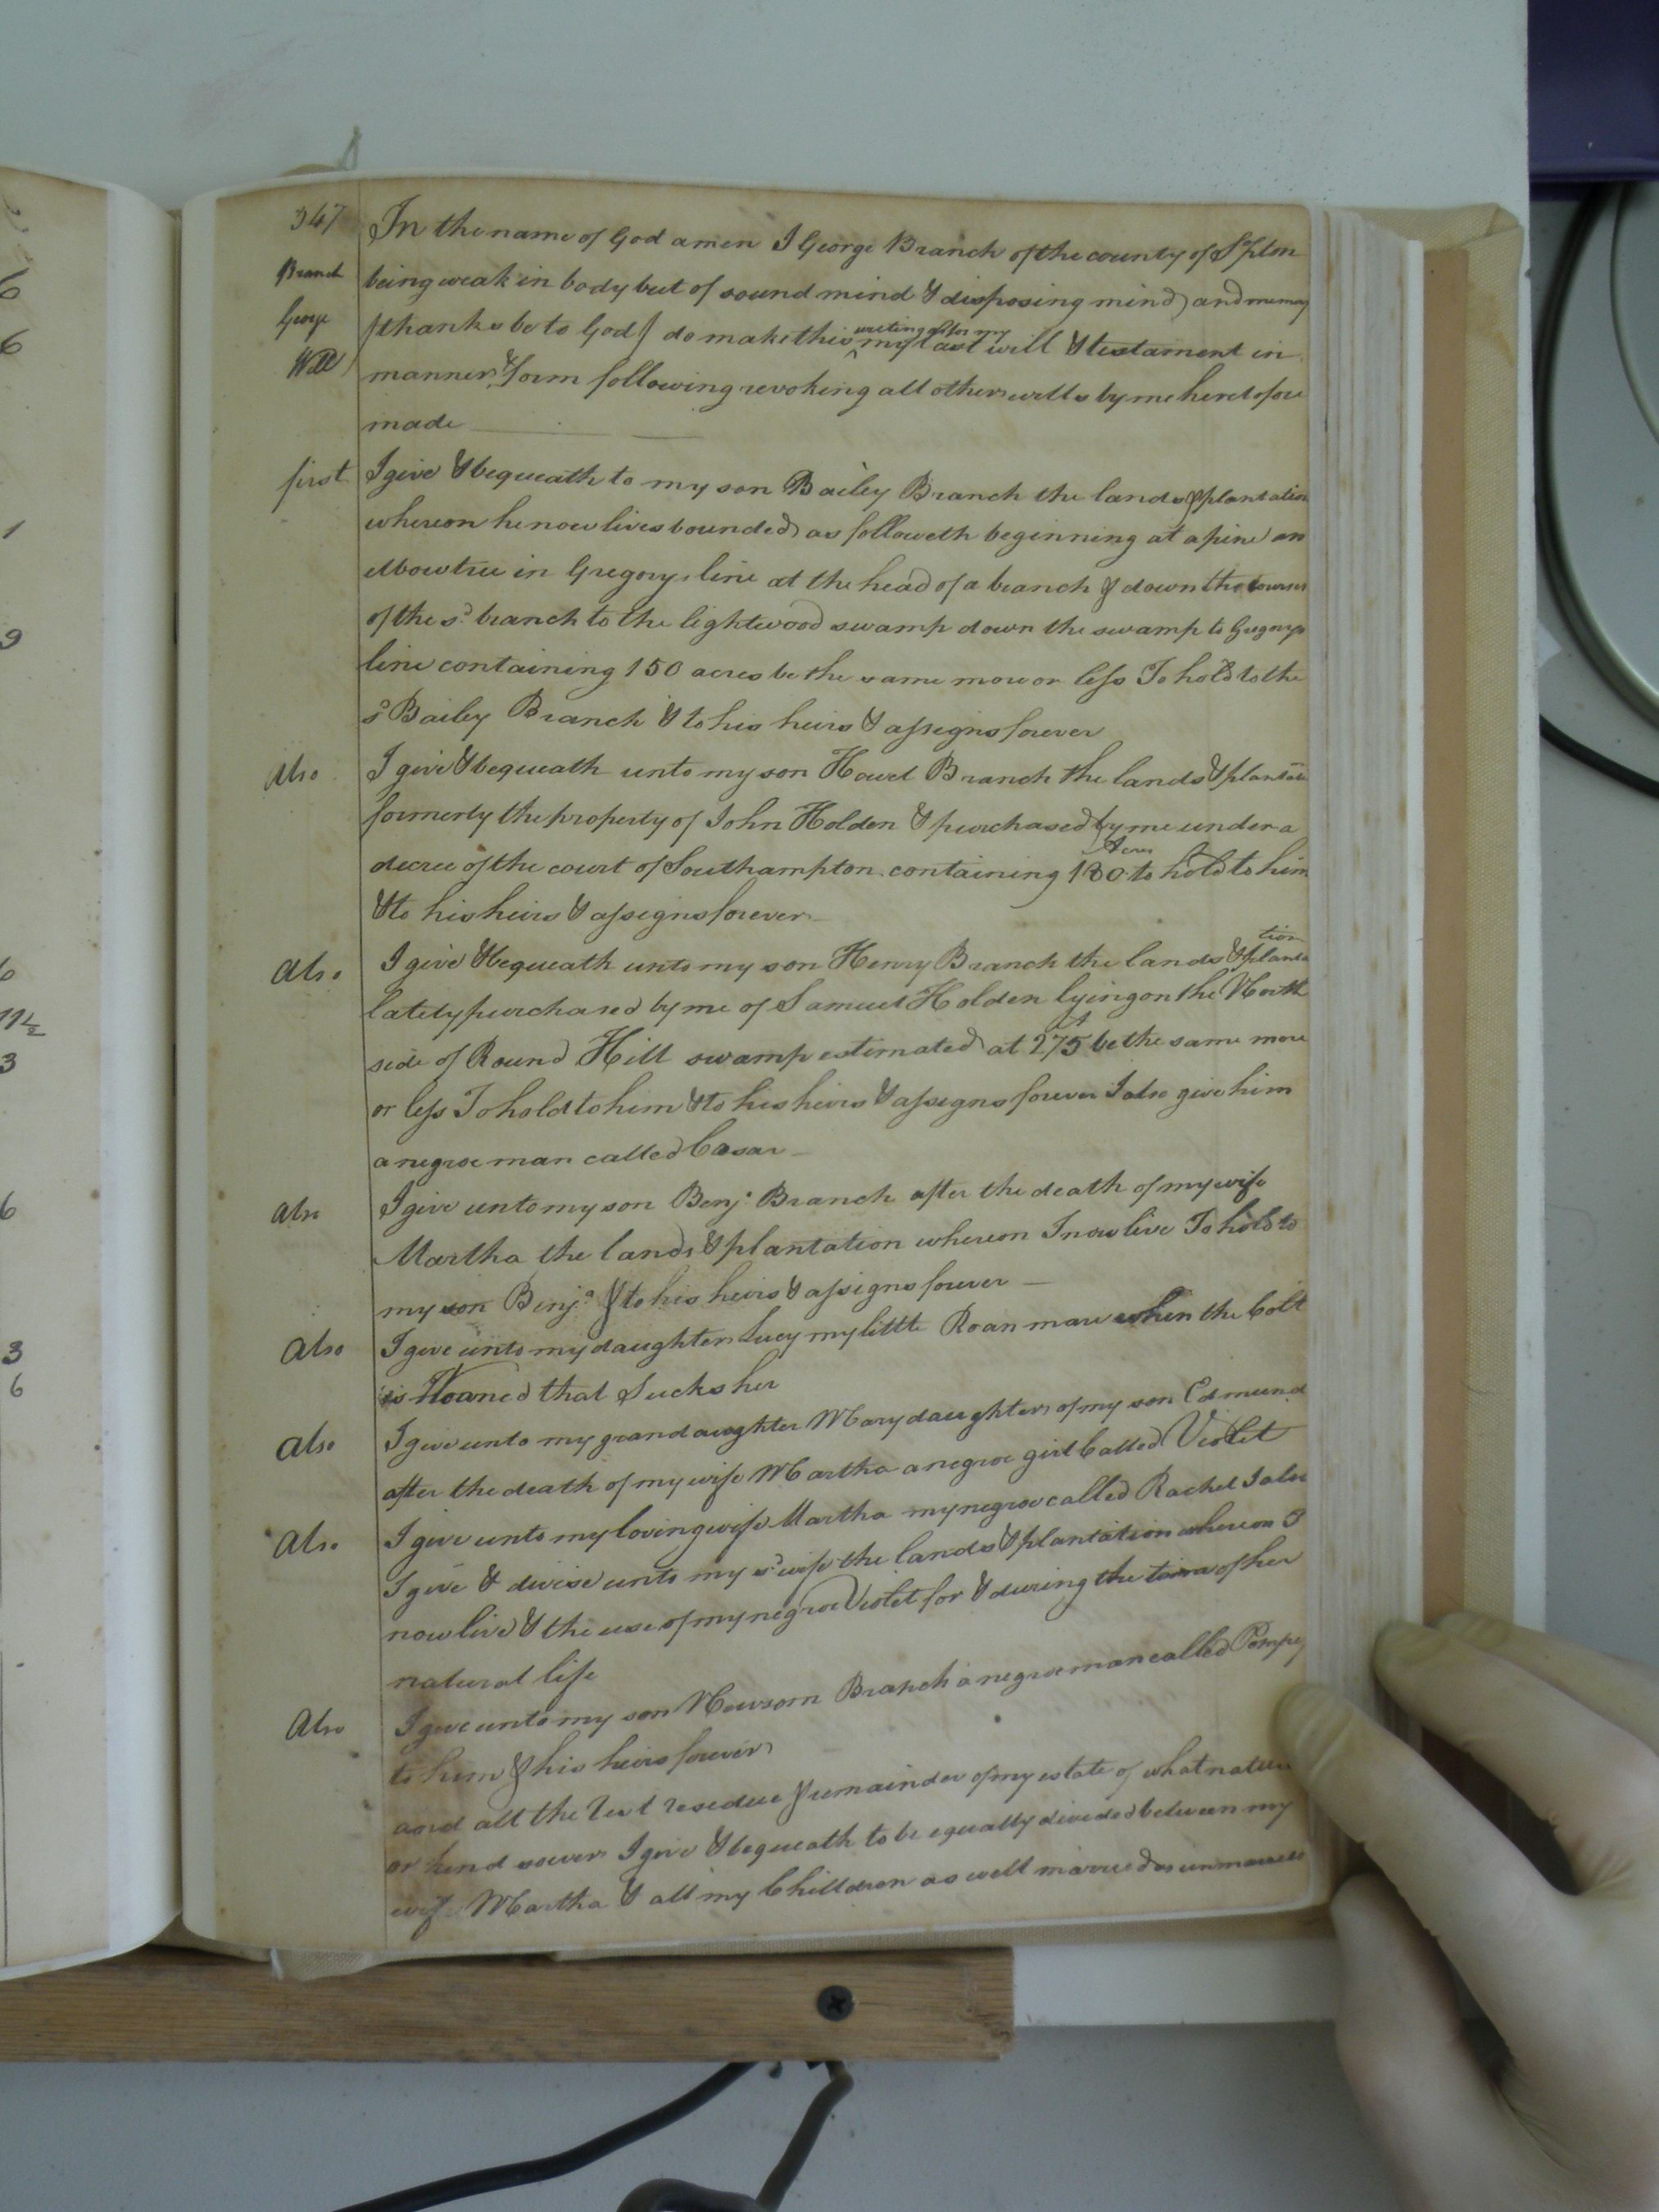 347 In the name of God amen I George Branch of the county of S°pton
Branch being weak in body but of sound mind & disposing mind and memory
George (thanks be to God) do make this writing for my my last will & testament in
Will manner & form following revoking all other wills by me heretofore
made
first I give & bequeath to my son Bailey Branch the lands & plantation
whereon he now lives bounded as followeth beginning at a pine an
Elbowtree in Gregorys line at the head of a branch & down the courses
of the sd branch to the lightwood swamp down the swamp to Gregorys
line containing 150 acres be the same more or less To hold to the
sd Bailey Branch & to his heirs & assigns forever
Also I give & bequeath unto my son Howel Branch the lands & plantatn
formerly the property of John Holden & purchased by me under a
decree of the court of Southampton containing 130 Acres to hold to him
& to his heirs & assigns forever
Also I give & bequeath unto my son Henry Branch the lands & plantation
lately purchased by me of Samuel Holden lying on the North
side of Round Hill swamp estimated at 275 A be the same more
or less To hold to him & to his heirs & assigns forever I also give him
a negroe man called Casar
also I give unto my son Benja Branch after the death of my wife
Martha the lands & plantation whereon I now live To hold to
my son Benja & to his heirs & assigns forever
Also I give unto my daughter Lucy my little Roan mare when the Colt
is Weaned that Sucks her
also I give unto my grandaughter Mary daughter of my son Edmund
after the death of my wife Martha a negroe girl Called Violet
Also I give unto my loving wife Martha my negroe called Rachel I also
I give & devise unto my sd wife the lands & plantation whereon I
now live & the use of my negroe Violet for & during the of her
natural life
Also I give unto my son Newsom Branch a negroe man called Pompey
to him & his heirs forever
and all the rest resedue & remainder of my estate of what nature
or kind soever I give & bequeath to be equally divided between my
wife Martha & all my Chilldren as well married as unmarried
6
6
1
9
6
11½
3
6
3
6